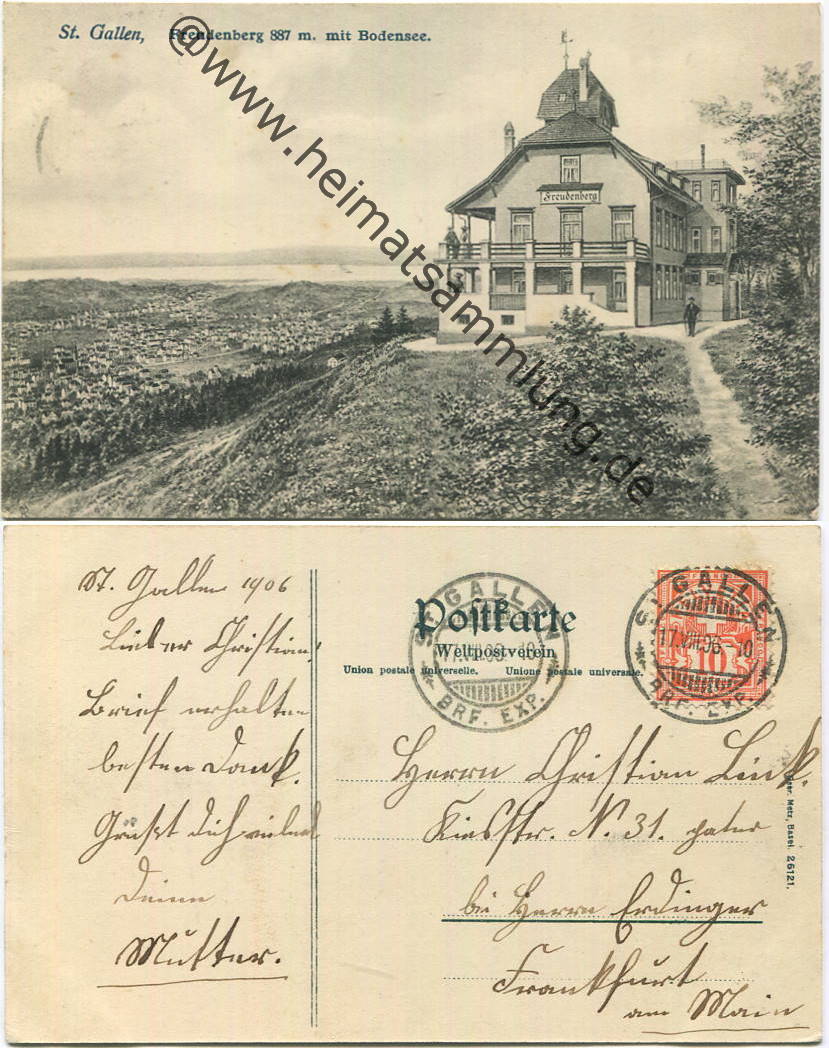 St. Gallen, Freudenberg 887 m. mit Bodensee.
@www.heimatsammlung.de
Freudenberg
St. Gallen 1906
Lieber Christian!
Brief erhalten
besten Dank.
Grüßt dich vielmal
Deine
Mutter.
Postkarte
Weltpostverein
Union postale universelle. Unione postale universale.
ST. GALLEN
17.VIII.06. 10
BRF. EXP.
ST. GALLEN
17.VIII.06. 10
BRF. EXP.
10
Herrn Christian Link.
Kiesstr. N. 31. parter
bei Herrn Erdinger
Frankfurt
am Main
Metz, Basel. 26121.